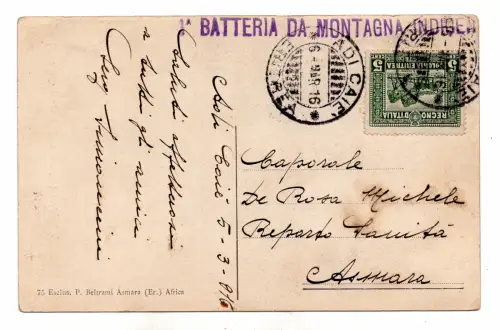 1ª BATTERIA DA MONTAGNA INDIGENI
ADI CAIE'
ERITREA
6
16
REGNO D'ITALIA
COLONIA ERITREA
5
5
Adi Caié 5-3-916
Saluti affettuosi
a tutti gli amici
Caporale
De Rosa Michele
Reparto Sanità
Asmara
75 Esclus. P. Beltrami Asmara (Er.) Africa